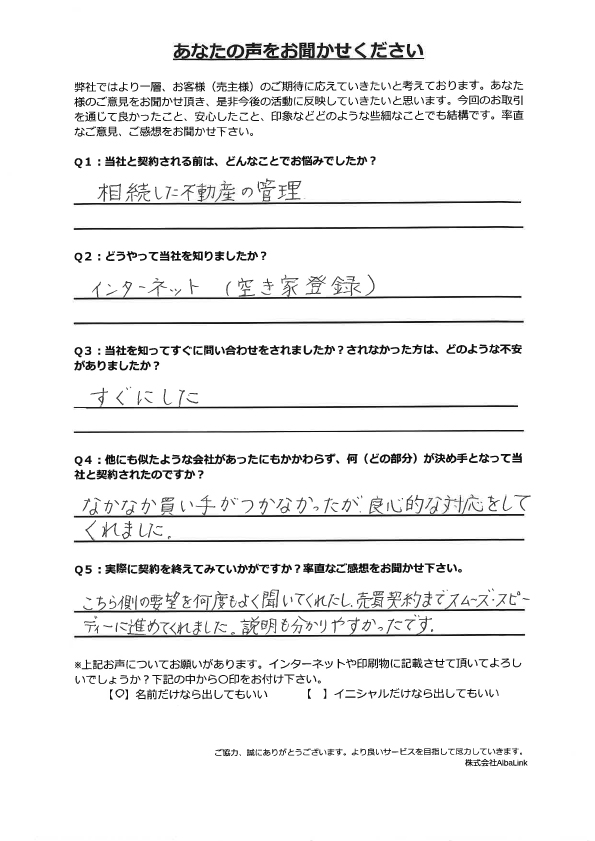 あなたの声をお聞かせください
弊社ではより一層、お客様（売主様）のご期待に応えていきたいと考えております。あなた
様のご意見をお聞かせ頂き、是非今後の活動に反映していきたいと思います。今回のお取引
を通じて良かったこと、安心したこと、印象などどのような些細なことでも結構です。率直
なご意見、ご感想をお聞かせ下さい。
Q１：当社と契約される前は、どんなことでお悩みでしたか？
相続した不動産の管理
Q２：どうやって当社を知りましたか？
インターネット （空き家登録）
Q３：当社を知ってすぐに問い合わせをされましたか？されなかった方は、どのような不安
がありましたか？
すぐにした
Q４：他にも似たような会社があったにもかかわらず、何（どの部分）が決め手となって当
社と契約されたのですか？
なかなか買い手がつかなかったが、良心的な対応をして
くれました。
Q５：実際に契約を終えてみていかがですか？率直なご感想をお聞かせ下さい。
こちら側の要望を何度もよく聞いてくれたし、売買契約までスムーズ・スピー
ディーに進めてくれました。説明も分かりやすかったです。
※上記お声についてお願いがあります。インターネットや印刷物に記載させて頂いてよろし
いでしょうか？下記の中から〇印をお付け下さい。
【〇】名前だけなら出してもいい 【 】イニシャルだけなら出してもいい
ご協力、誠にありがとうございます。より良いサービスを目指して尽力していきます。
株式会社AibaLink